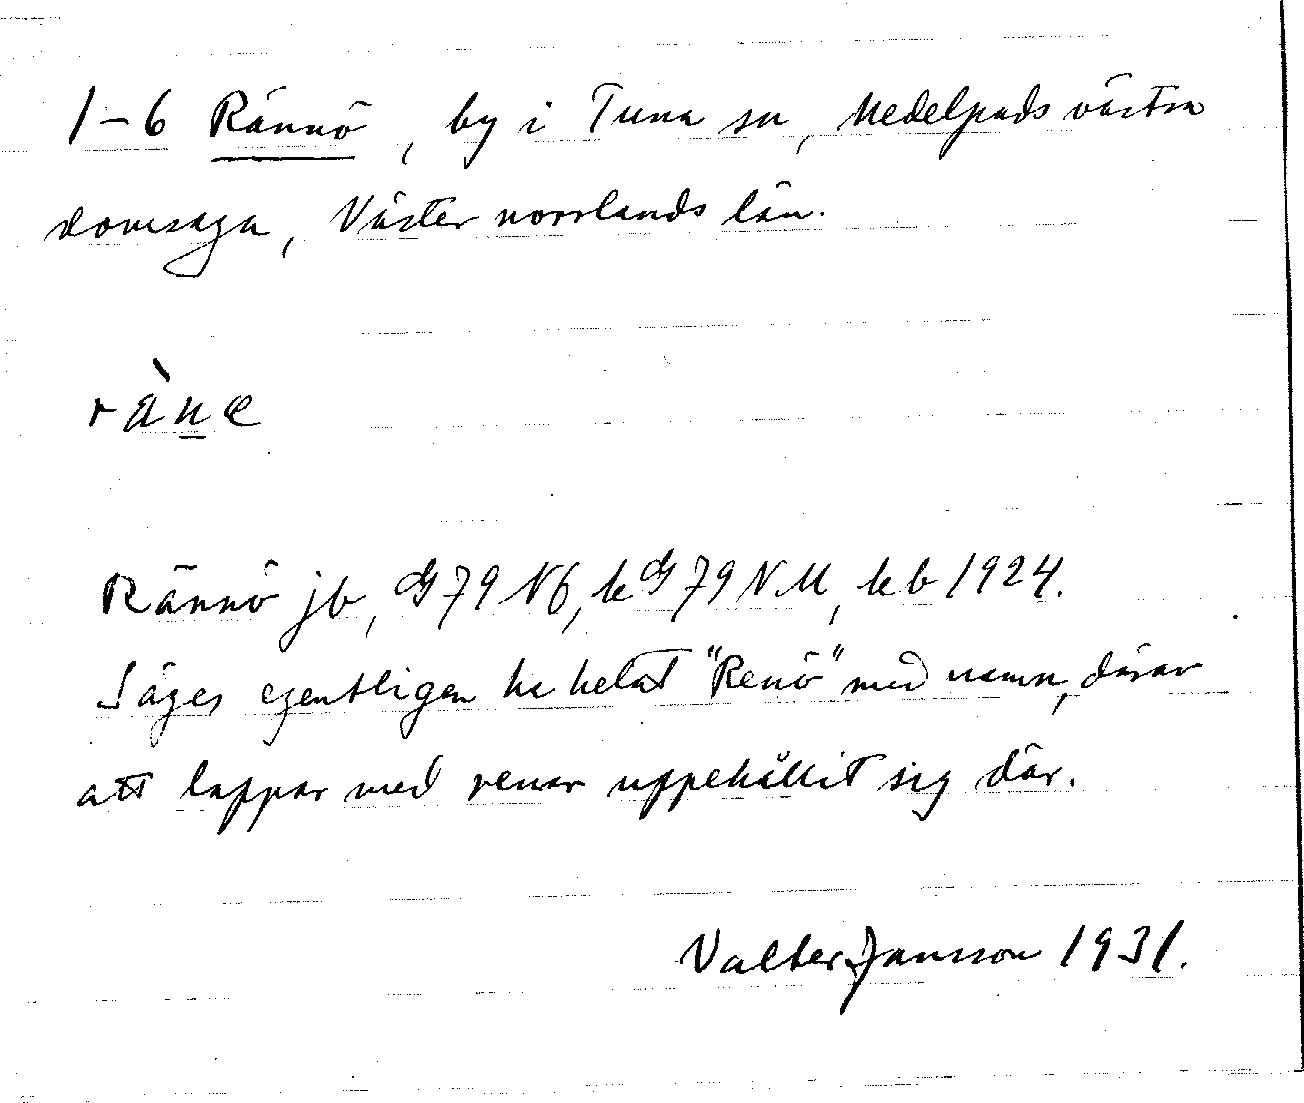 1-6 Rännö, by i Tuna sn, Medelpads västra
domsaga, Västernorrlands län.
rä̀n̲e
Rännö jb, G 79 Nf, k G 79 NM, kb 1924.
Säges egentligen ha hetat "Renö" med namn, därav
att lappar med renar uppehållit sig där.
Valter Jansson 1931.